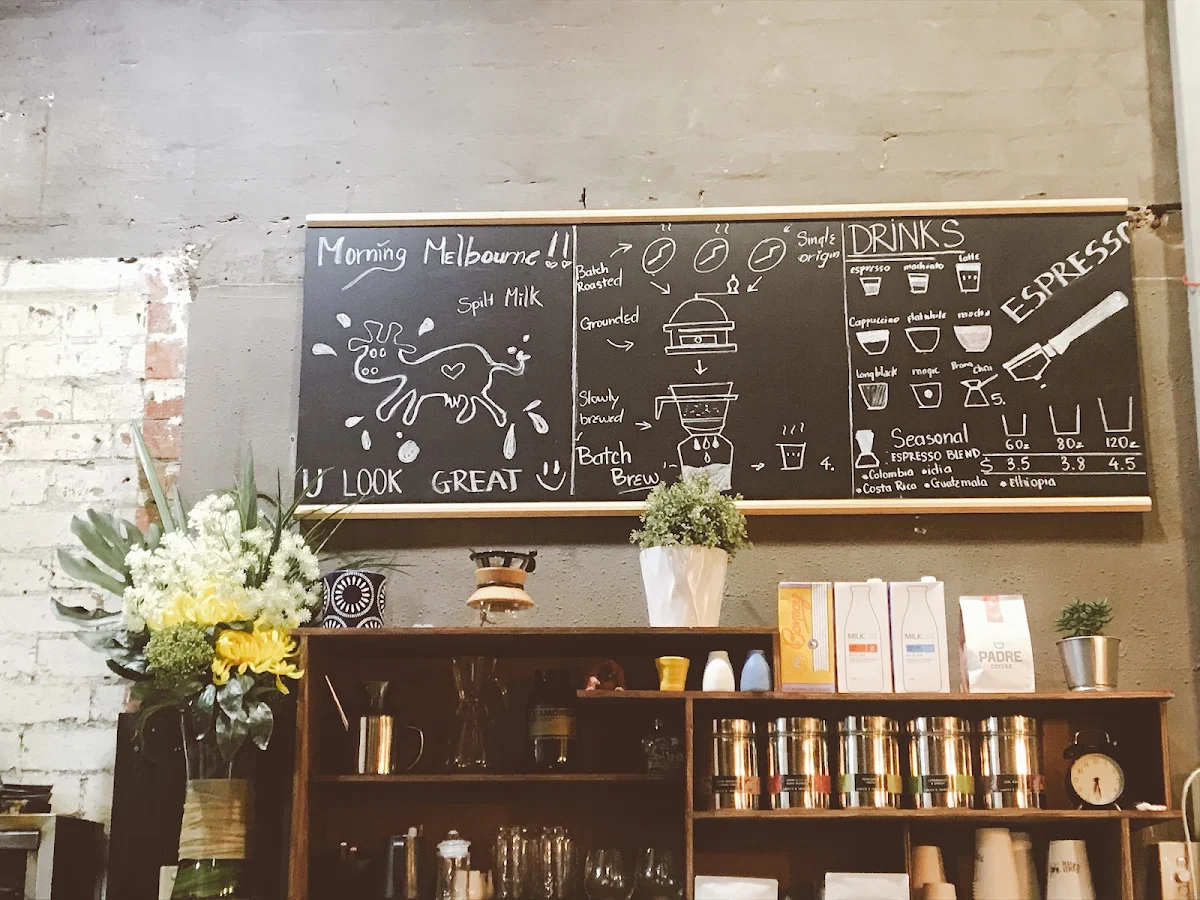 Morning Melbourne!!
Spilt Milk
U LOOK GREAT
Batch
Roasted
"Single
origin
Grounded
Slowly
brewed
"Batch
Brew"
4.
DRINKS
espresso machiato latte
Cappuccino flatwhite mocha
longblack magic
Chai
5.
ESPRESSO
Seasonal
ESPRESSO BLEND
•Colombia •idia
•Costa Rica •Guatemala •Ethiopia
6oz 8oz 12oz
$ 3.5 3.8 4.5
Bonsoy
MILK
MILK
PADRE
COFFEE